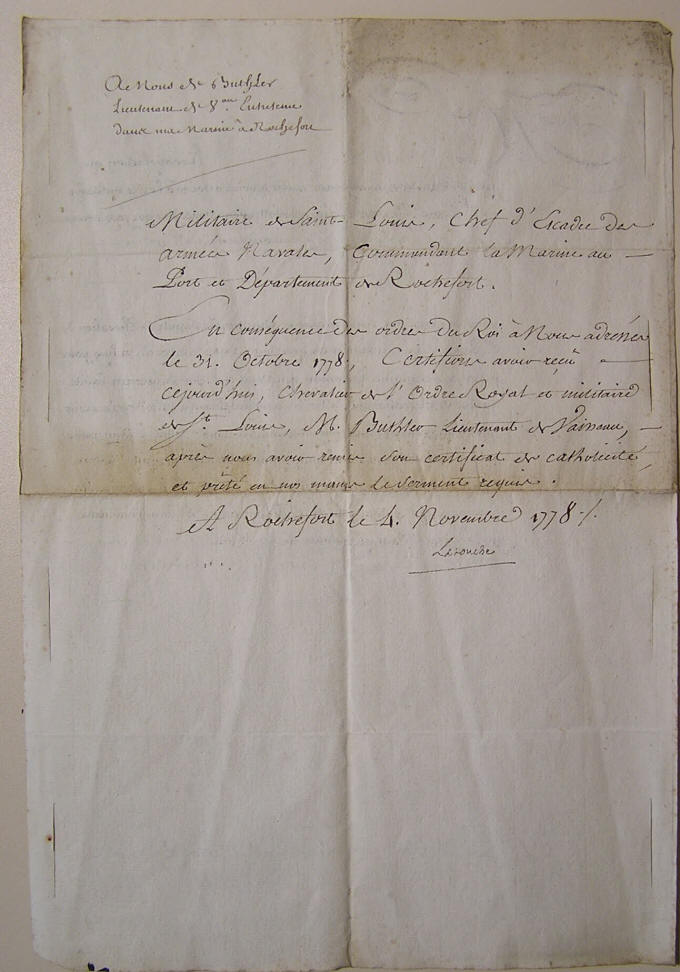 de Buthler
Lieutenant de V.au Entretenu
dans ma Marine à Rochefort
Militaire de Saint-Louis, Chef d'Escadre des
armées Navales, Commandant la Marine au —
Port et Département de Rochefort.
En conséquence des ordres du Roi à Nous adressés
le 31. Octobre 1778, Certifions avoir reçu —
cejourd'hui, Chevalier de l'Ordre Royal et militaire
de St. Louis, M. Buthler Lieutenant de Vaisseaux, —
après nous avoir remis son certificat de catholicité,
et prêté en nos mains le serment requis.
A Rochefort le 4. Novembre 1778 ./.
Latouche